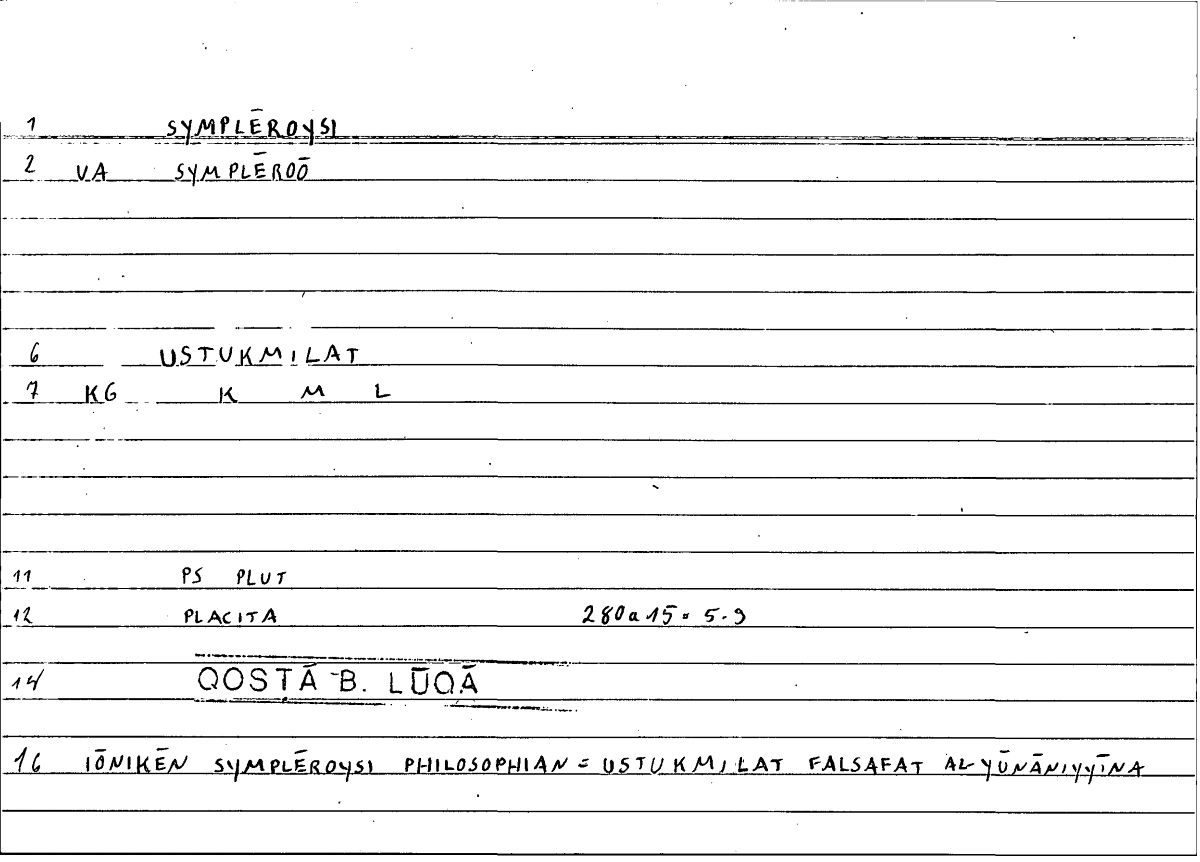 1 SYMPLĒROYSI
2 VA SYMPLĒROŌ
6 USTUKMILAT
7 KG K M L
11 PS PLUT
12 PLACITA 280a15 = 5.9
14 QOSṬĀ B. LŪQĀ
16 IŌNIKĒN SYMPLĒROYSI PHILOSOPHIAN = USTUKMILAT FALSAFAT AL-YŪNĀNIYYĪNA